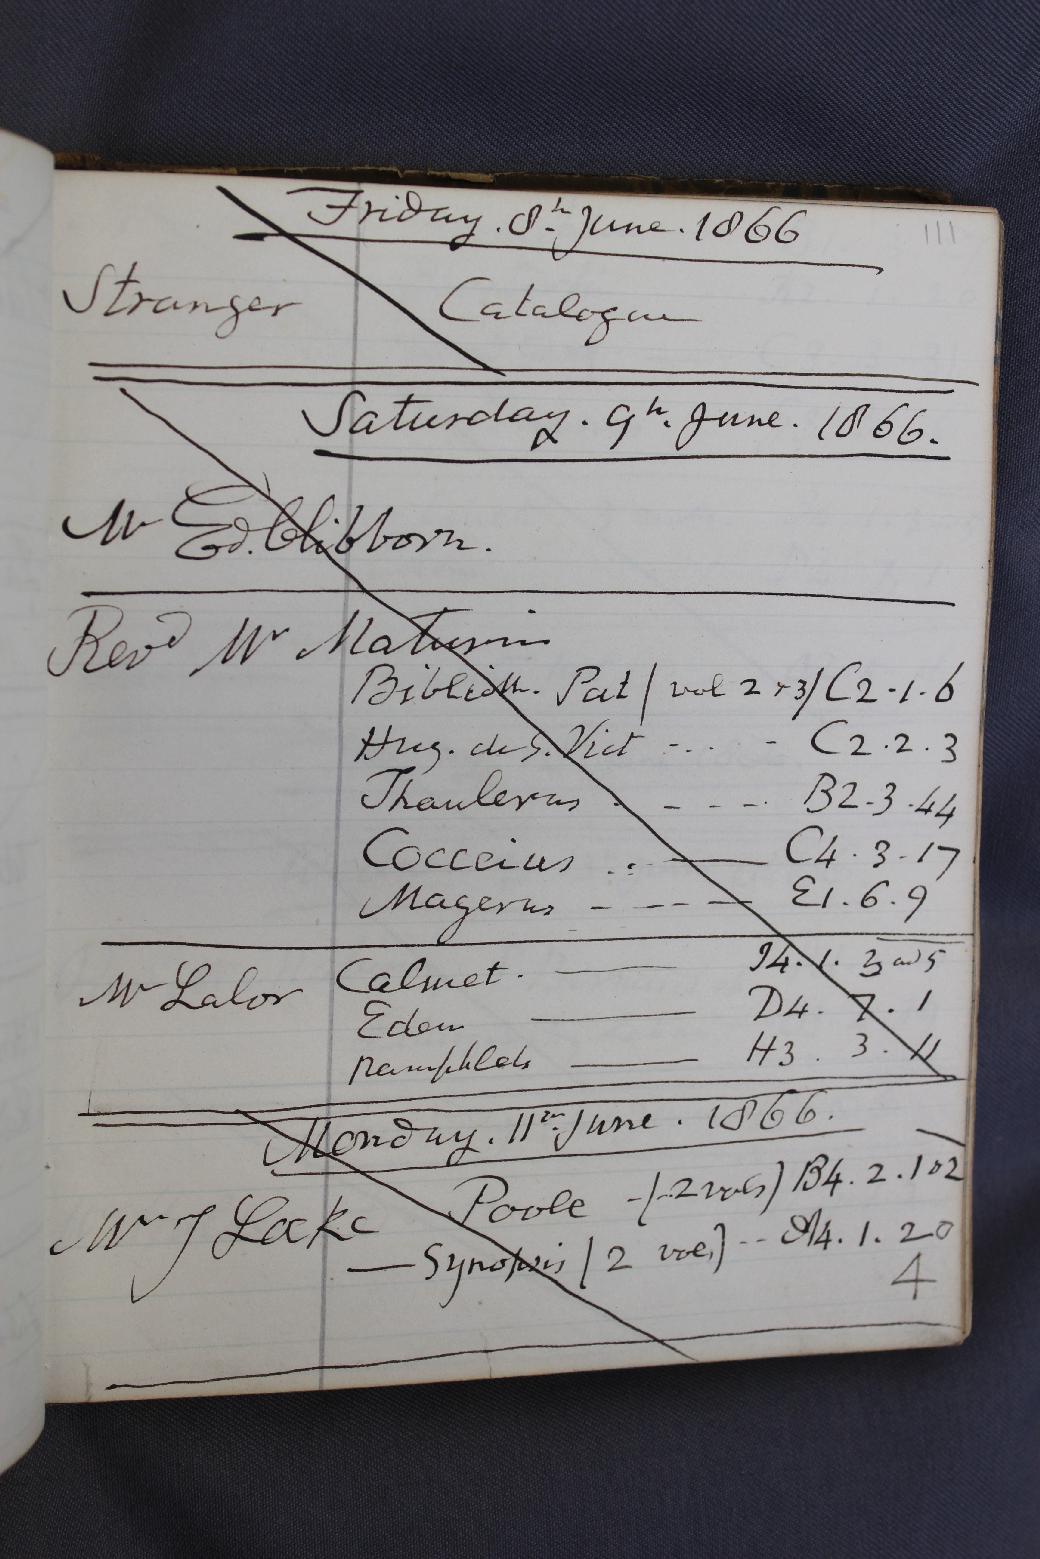 111
Friday. 8th June. 1866
Stranger Catalogue
Saturday. 9th. June. 1866.
Mr Ed. Clibborn.
Revd Mr Maturin
Biblioth. Pat / vol 2 + 3 / C2.1.6
Hug. de S. Vict - - - - C2.2.3
Thaulerus . - - - - B2.3.44
Cocceius .. — C4.3.17
Magerus - - - - - E1.6.9
Mr Lalor Calmet. — I4.1.3 and 5
Eden — D4.7.1
Pamphlets — H3.3.11
Monday. 11th June. 1866.
Mr J Locke Poole - (2 vols) B4.2.102
— Synopsis / 2 vols) -- A4.1.20
4